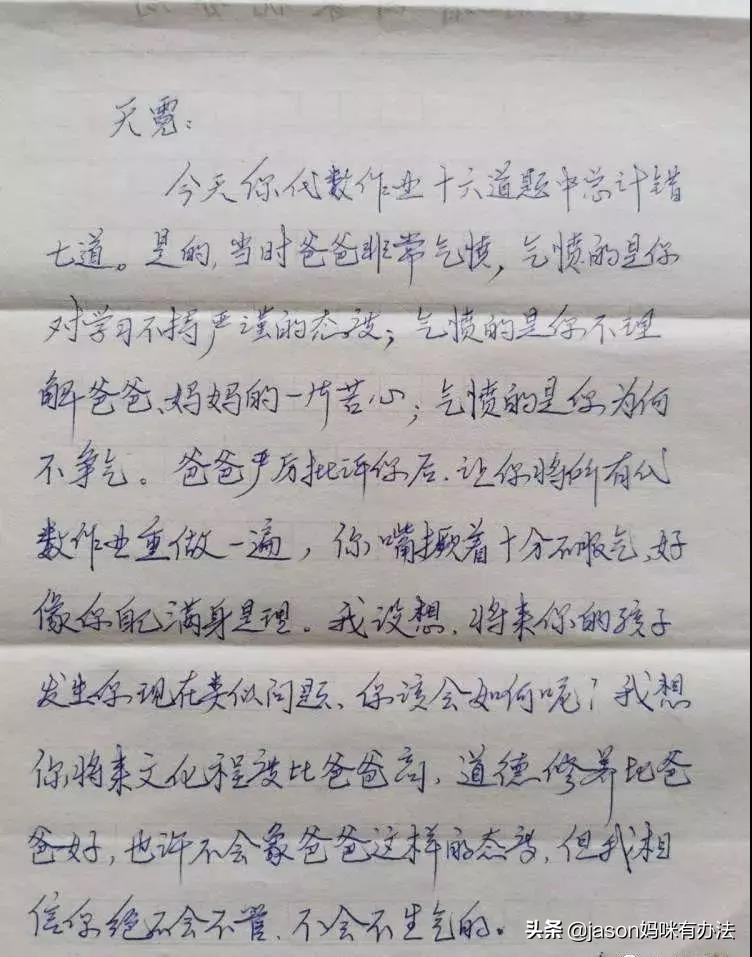 天霓：
今天你代数作业十六道题中总计错
七道。是的，当时爸爸非常气愤，气愤的是你
对学习不持严谨的态度；气愤的是你不理
解爸爸、妈妈的一片苦心；气愤的是你为何
不争气。爸爸严厉批评你后，让你将所有代
数作业重做一遍，你嘴撅着十分不服气，好
像你自己满身是理。我设想，将来你的孩子
发生你现在类似问题、你该会如何呢？我想
你将来文化程度比爸爸高，道德修养比爸
爸好，也许不会象爸爸这样的态度，但我相
信你绝不会不管、不会不生气的。
头条 @jason妈咪有办法